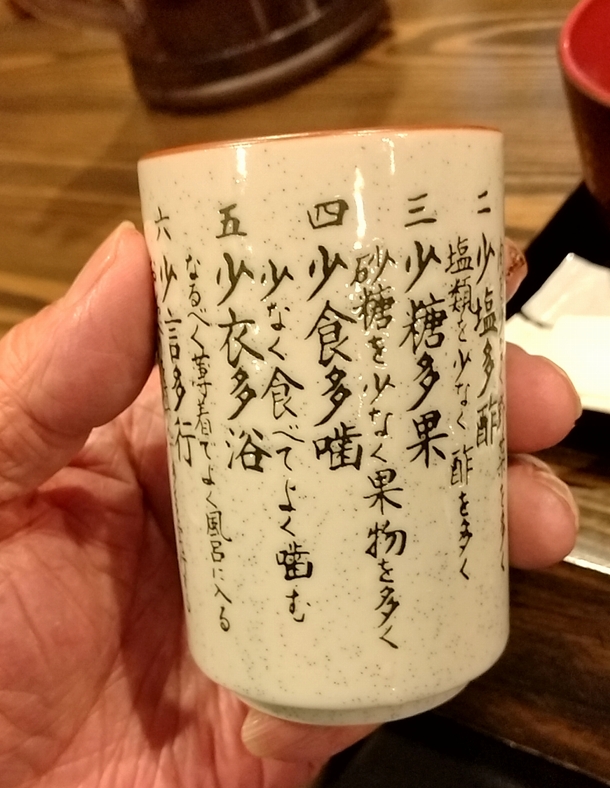 二 少塩多酢
塩類を少なく 酢を多く
三 少糖多果
砂糖を少なく果物を多く
四 少食多噛
少なく食べてよく噛む
五 少衣多浴
なるべく薄着でよく風呂に入る
六 少言多行